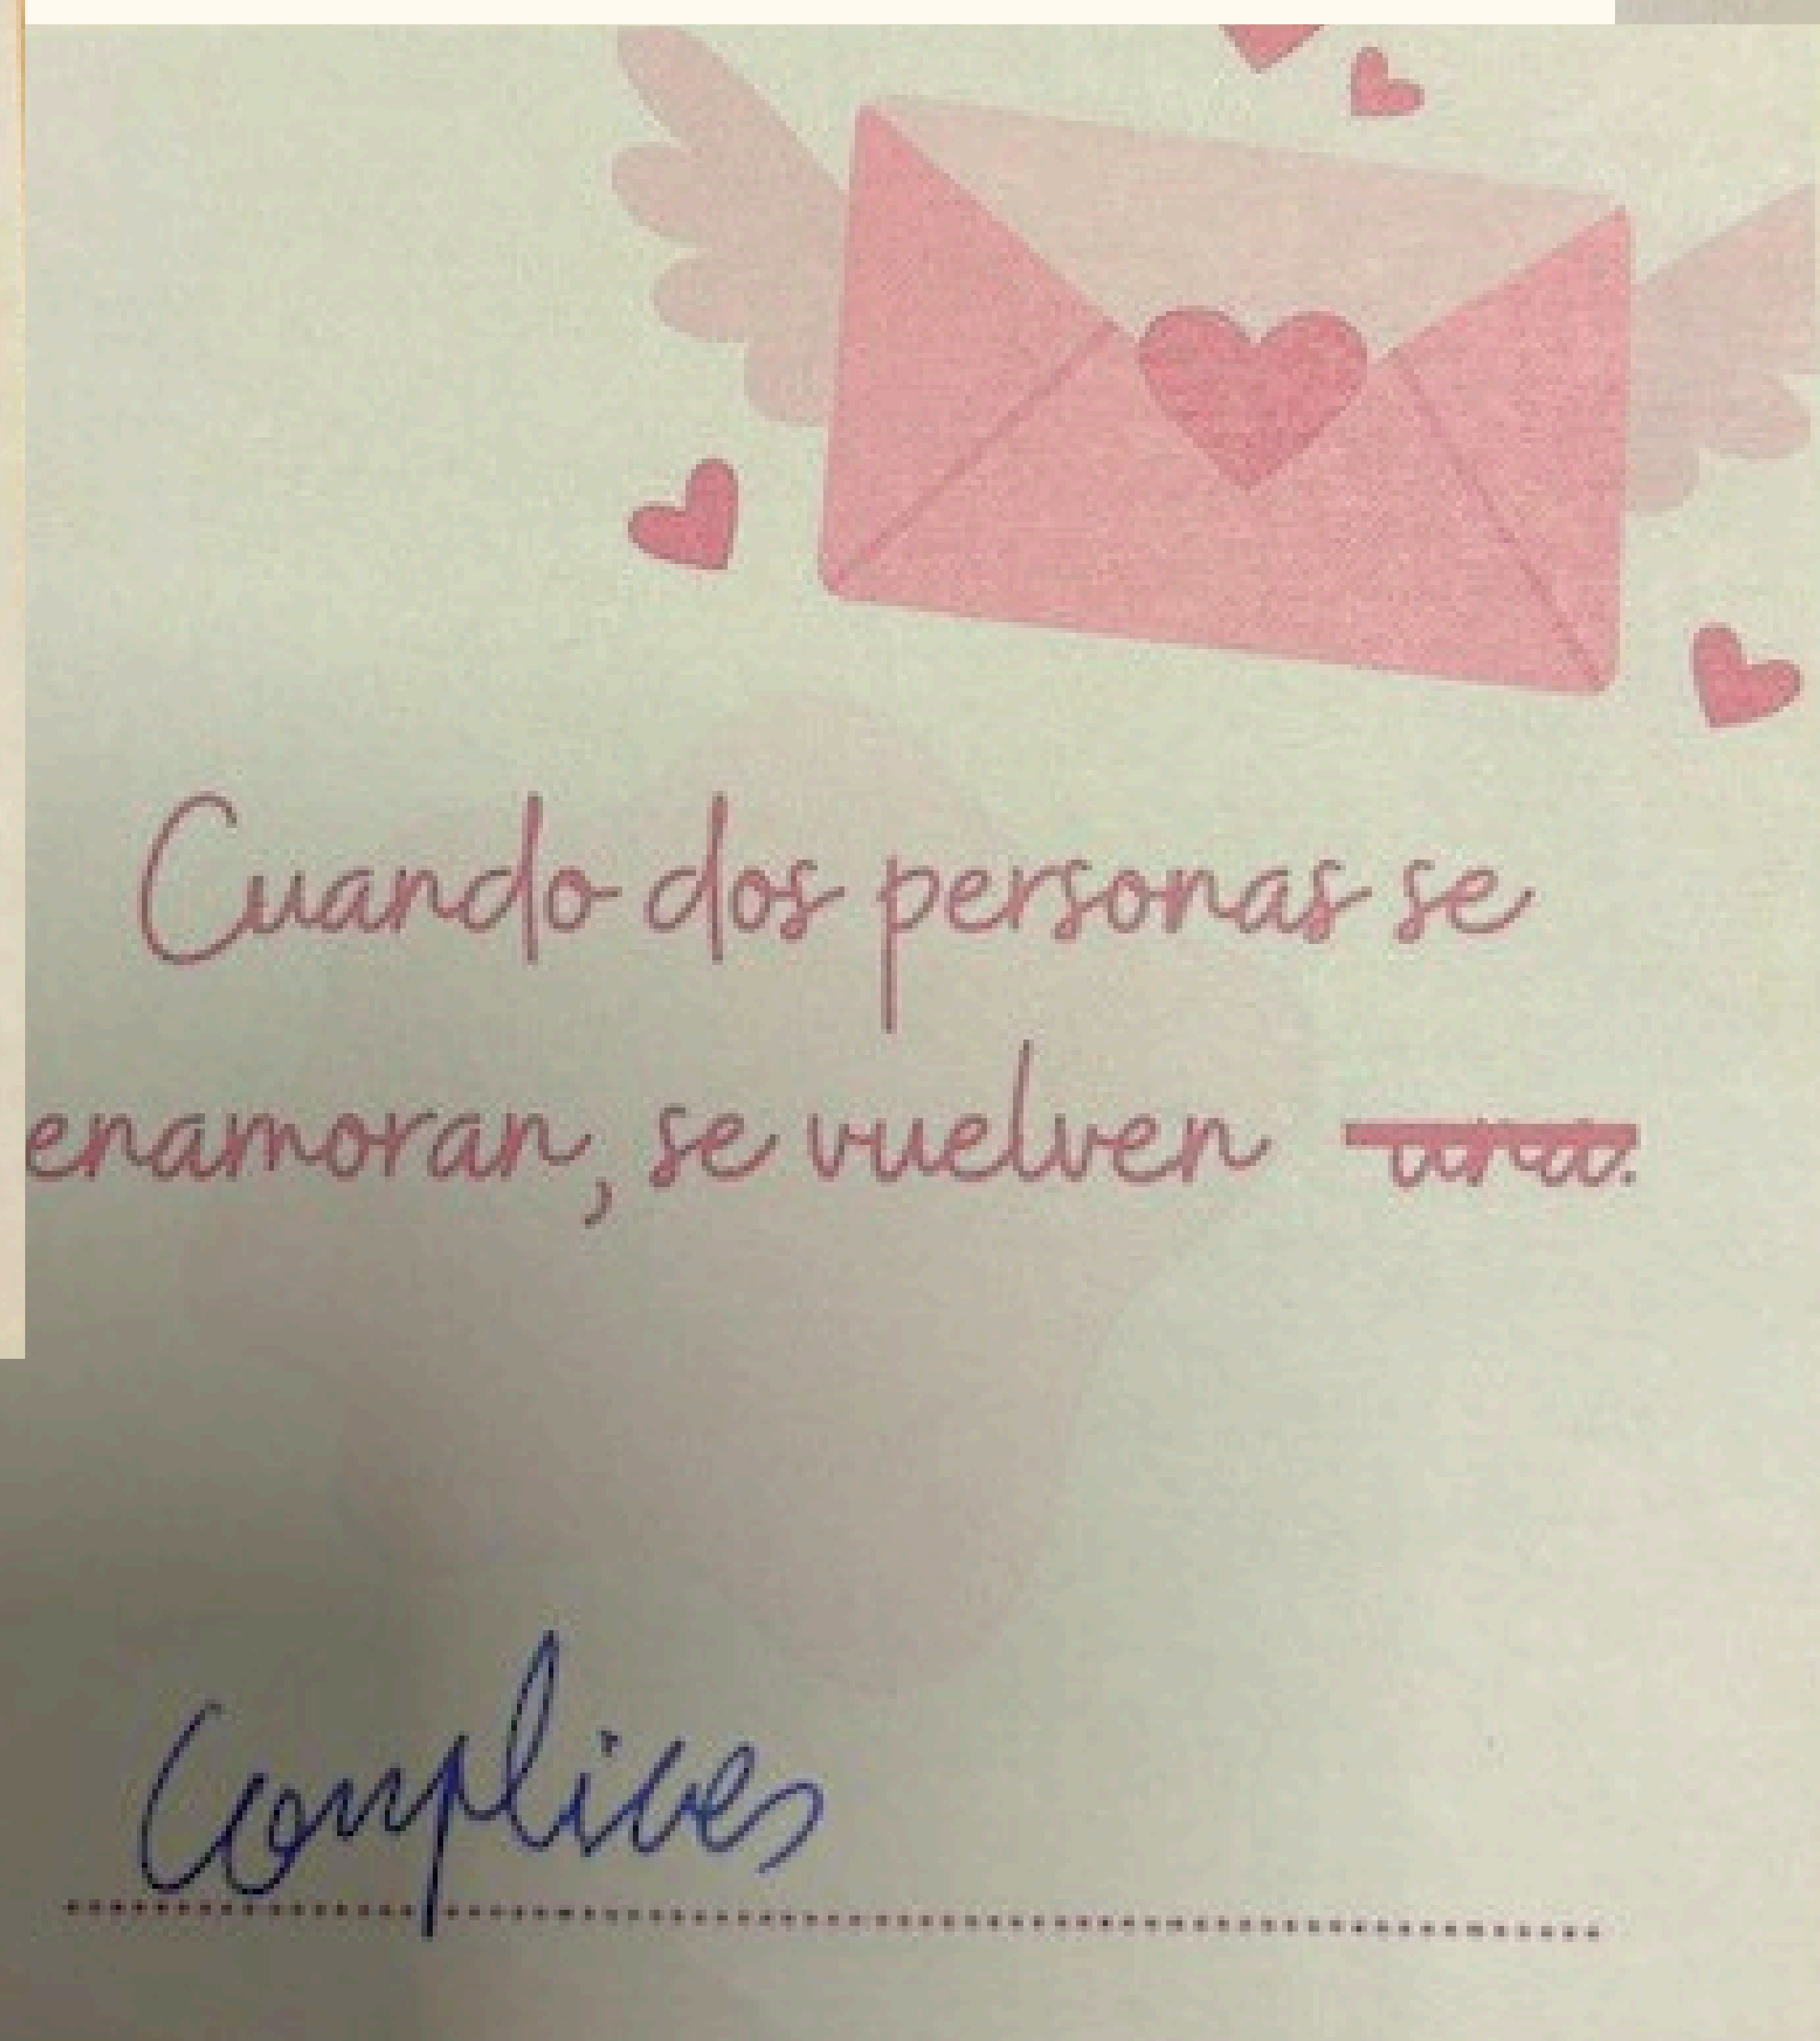 Cuando dos personas se
enamoran, se vuelven
Complices